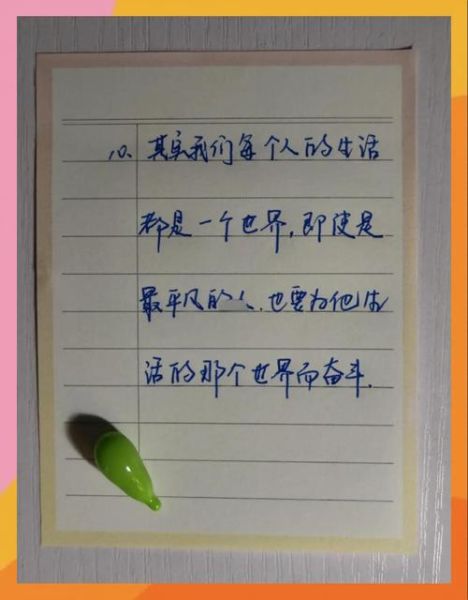 10. 其实我们每个人的生活
都是一个世界,即使是
最平凡的人.也要为他生
活的那个世界而奋斗.